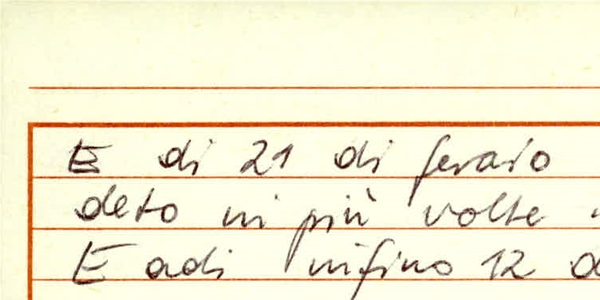 E di 21 di feraio
deto in più volte
E adi infino 12 d